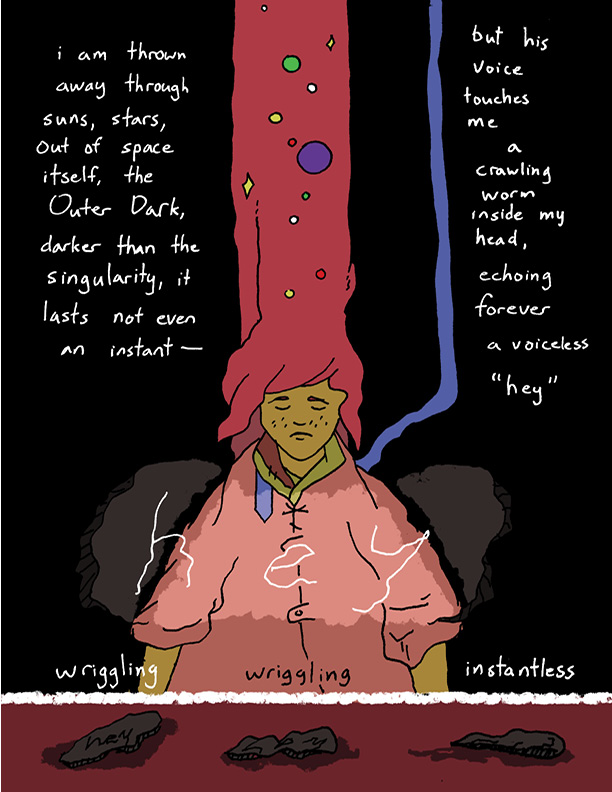 i am thrown
away through
suns, stars,
out of space
itself, the
Outer Dark,
darker than the
singularity, it
lasts not even
an instant —
but his
voice
touches
me
a
crawling
worm
inside my
head,
echoing
forever
a voiceless
"hey"
hey
wriggling wriggling instantless
hey